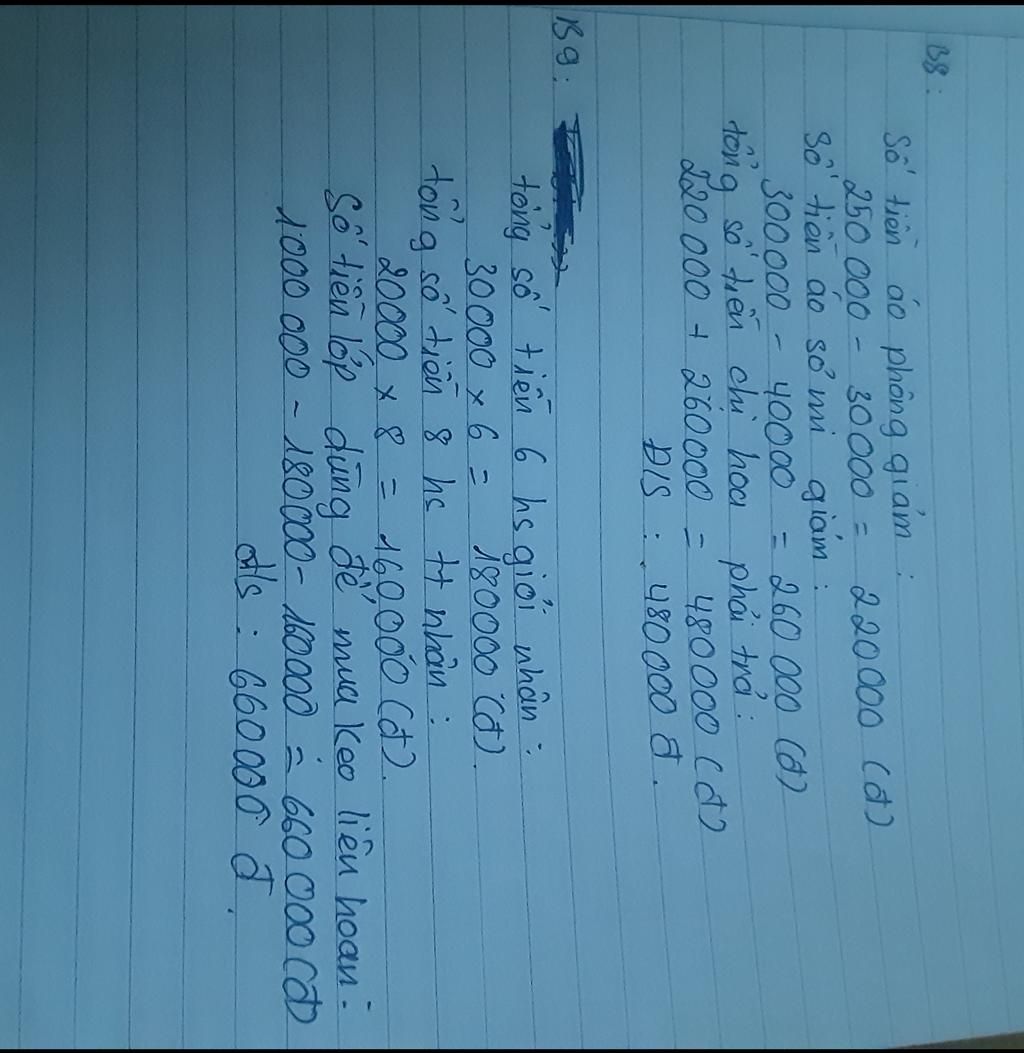 B8:
Số tiền áo phông giảm:
250 000 - 30 000 = 220000 (đ)
Số tiền áo sơ mi giảm:
300000 - 40000 = 260 000 (đ)
tổng số tiền chị hoa phải trả:
220 000 + 260000 = 480000 (đ)
Đ/S: 480000 đ.
B9:
tổng số tiền 6 hs giỏi nhận:
30 000 x 6 = 180000 (đ).
tổng số tiền 8 hs tt nhận:
20000 x 8 = 160000 (đ).
Số tiền lớp dùng để mua kẹo liên hoan:
1000 000 - 180000 - 160000 = 660 000 (đ)
đ/s: 660000 đ.